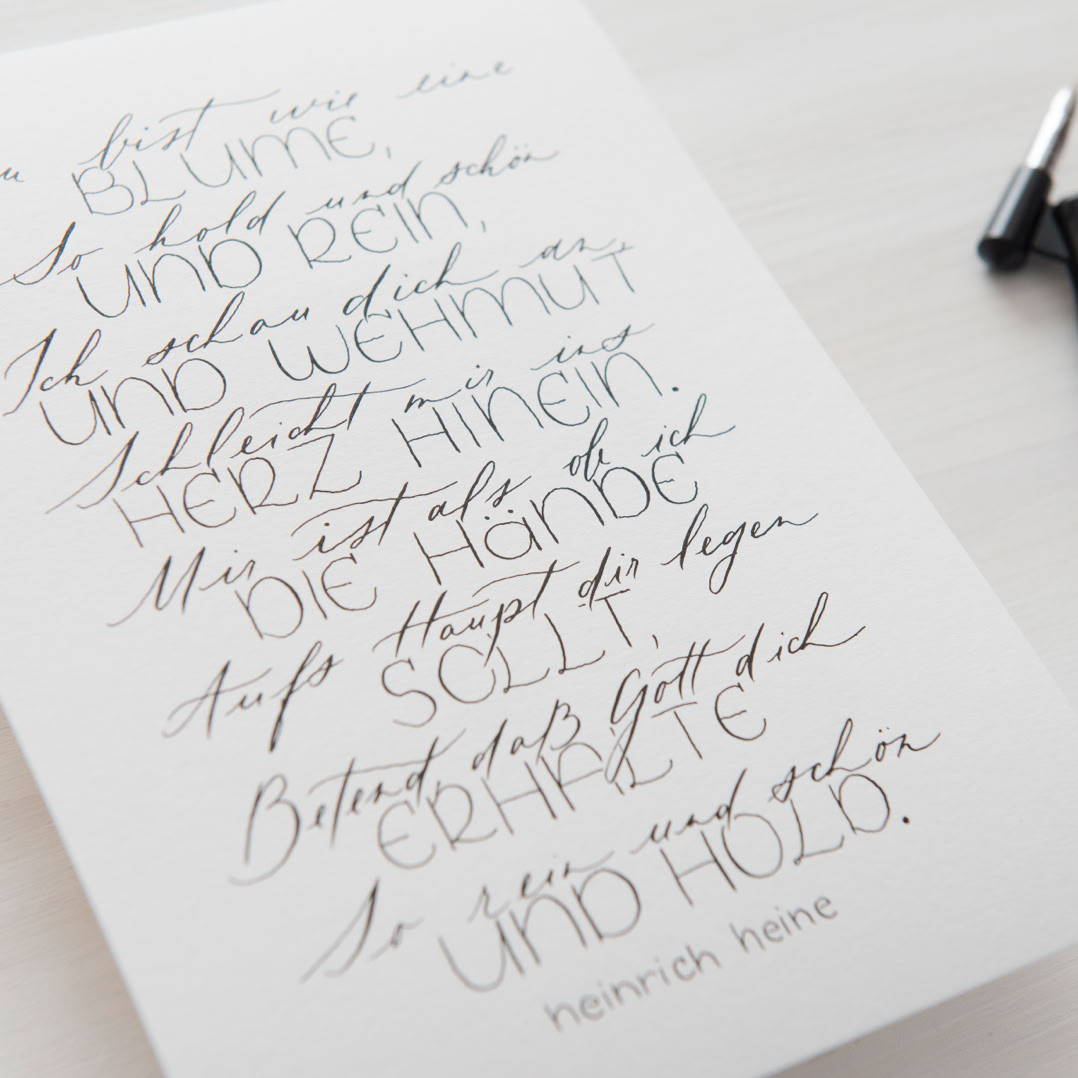 u bist wie eine
BLUME,
So hold und schön
UND REIN,
Ich schau dich an,
UND WEHMUT
Schleicht mir ins
HERZ HINEIN.
Mir ist als ob ich
DIE HÄNDE
Aufs Haupt dir legen
SOLLT,
Betend, daß Gott dich
ERHALTE
So rein und schön
UND HOLD.
heinrich heine